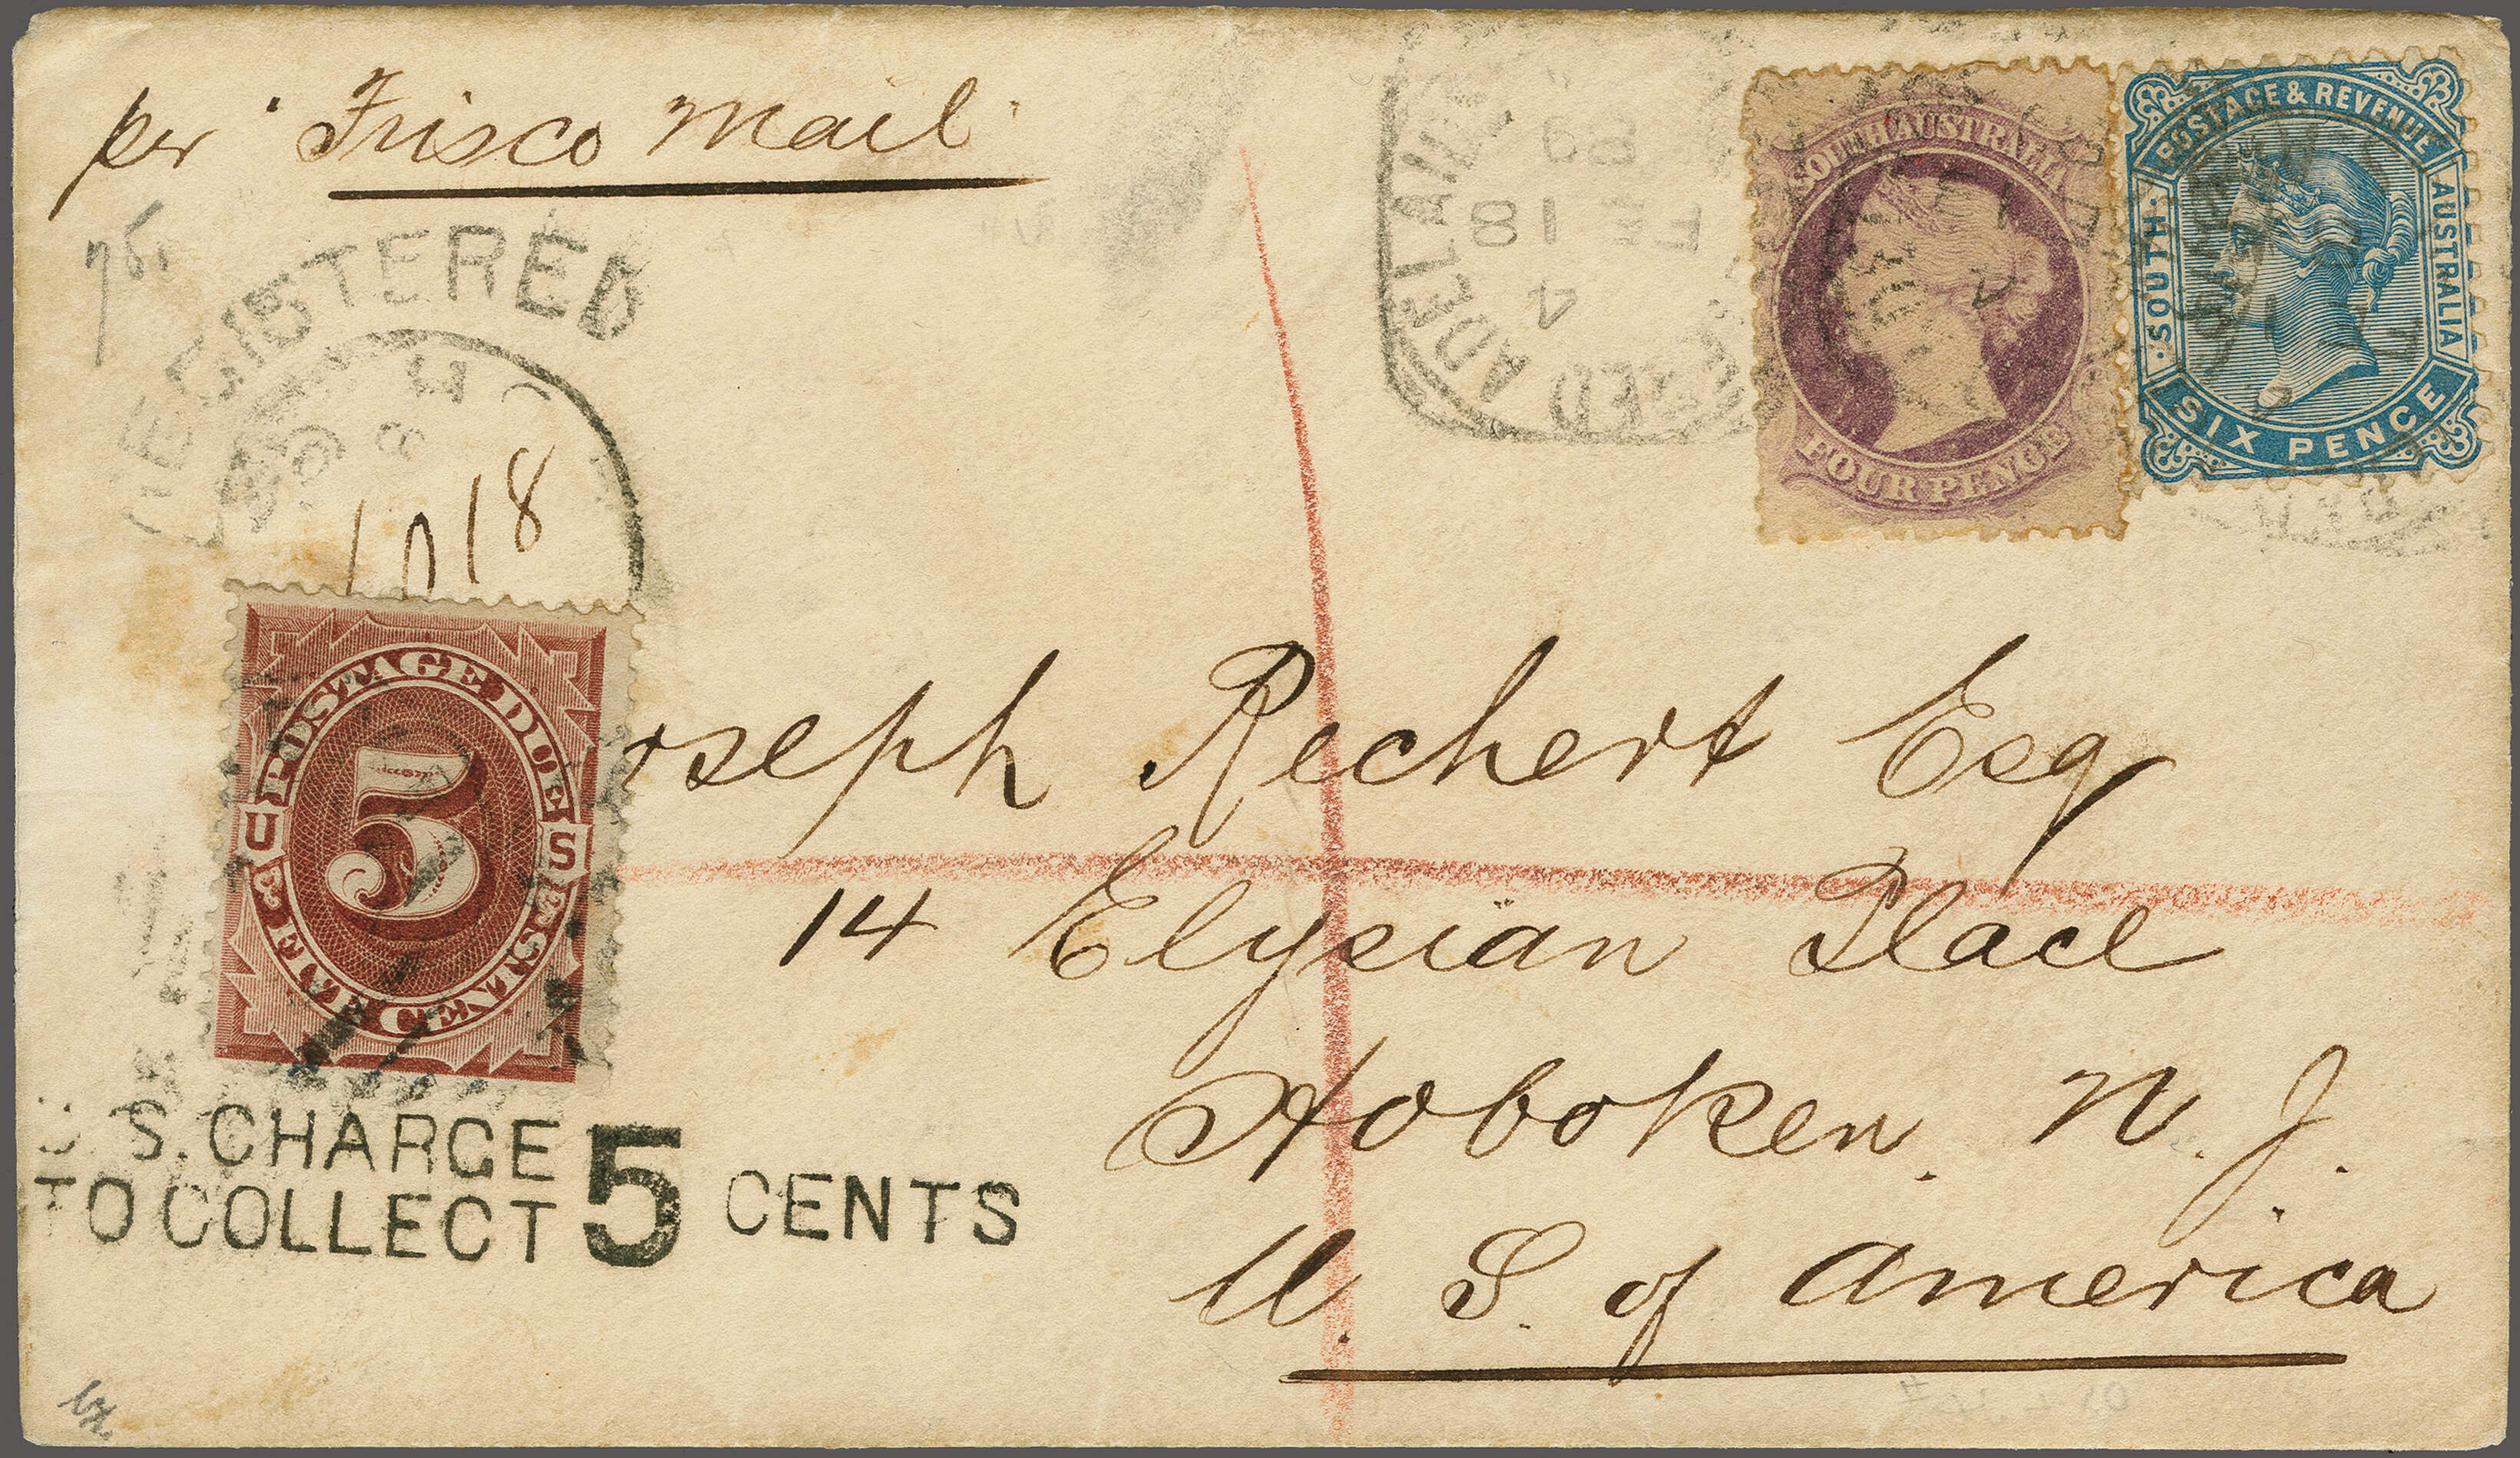 per "Frisco Mail"
REGISTERED
1018
REGISTERED ADELAIDE
4
FE 18
89
SOUTH AUSTRALIA
FOUR PENCE
POSTAGE & REVENUE
SOUTH AUSTRALIA
SIX PENCE
POSTAGE DUE
U 5 S
FIVE CENTS
oseph Rechert Esq
14 Elysian Place
Hoboken. N. J.
U. S. of America
U. S. CHARGE
TO COLLECT 5 CENTS